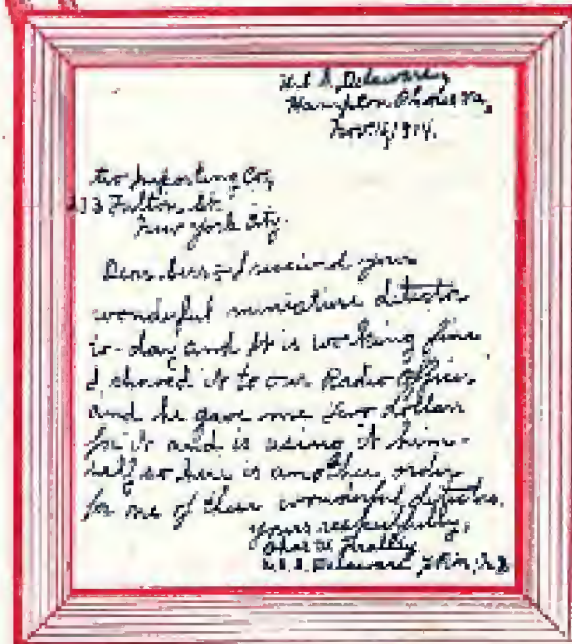 U.S.S. Delaware,
Hampton Roads Va,
Nov 1914.
Importing Co,
233 Fulton St.
New York City.
Dear Sirs:- I received your
wonderful miniature detector
to-day and it is working fine
I showed it to our Radio officer
and he gave me two dollars
for it and is using it him-
self so here is another order
for one of these wonderful detectors.
Yours respectfully,
Chas
U.S.S. Delaware